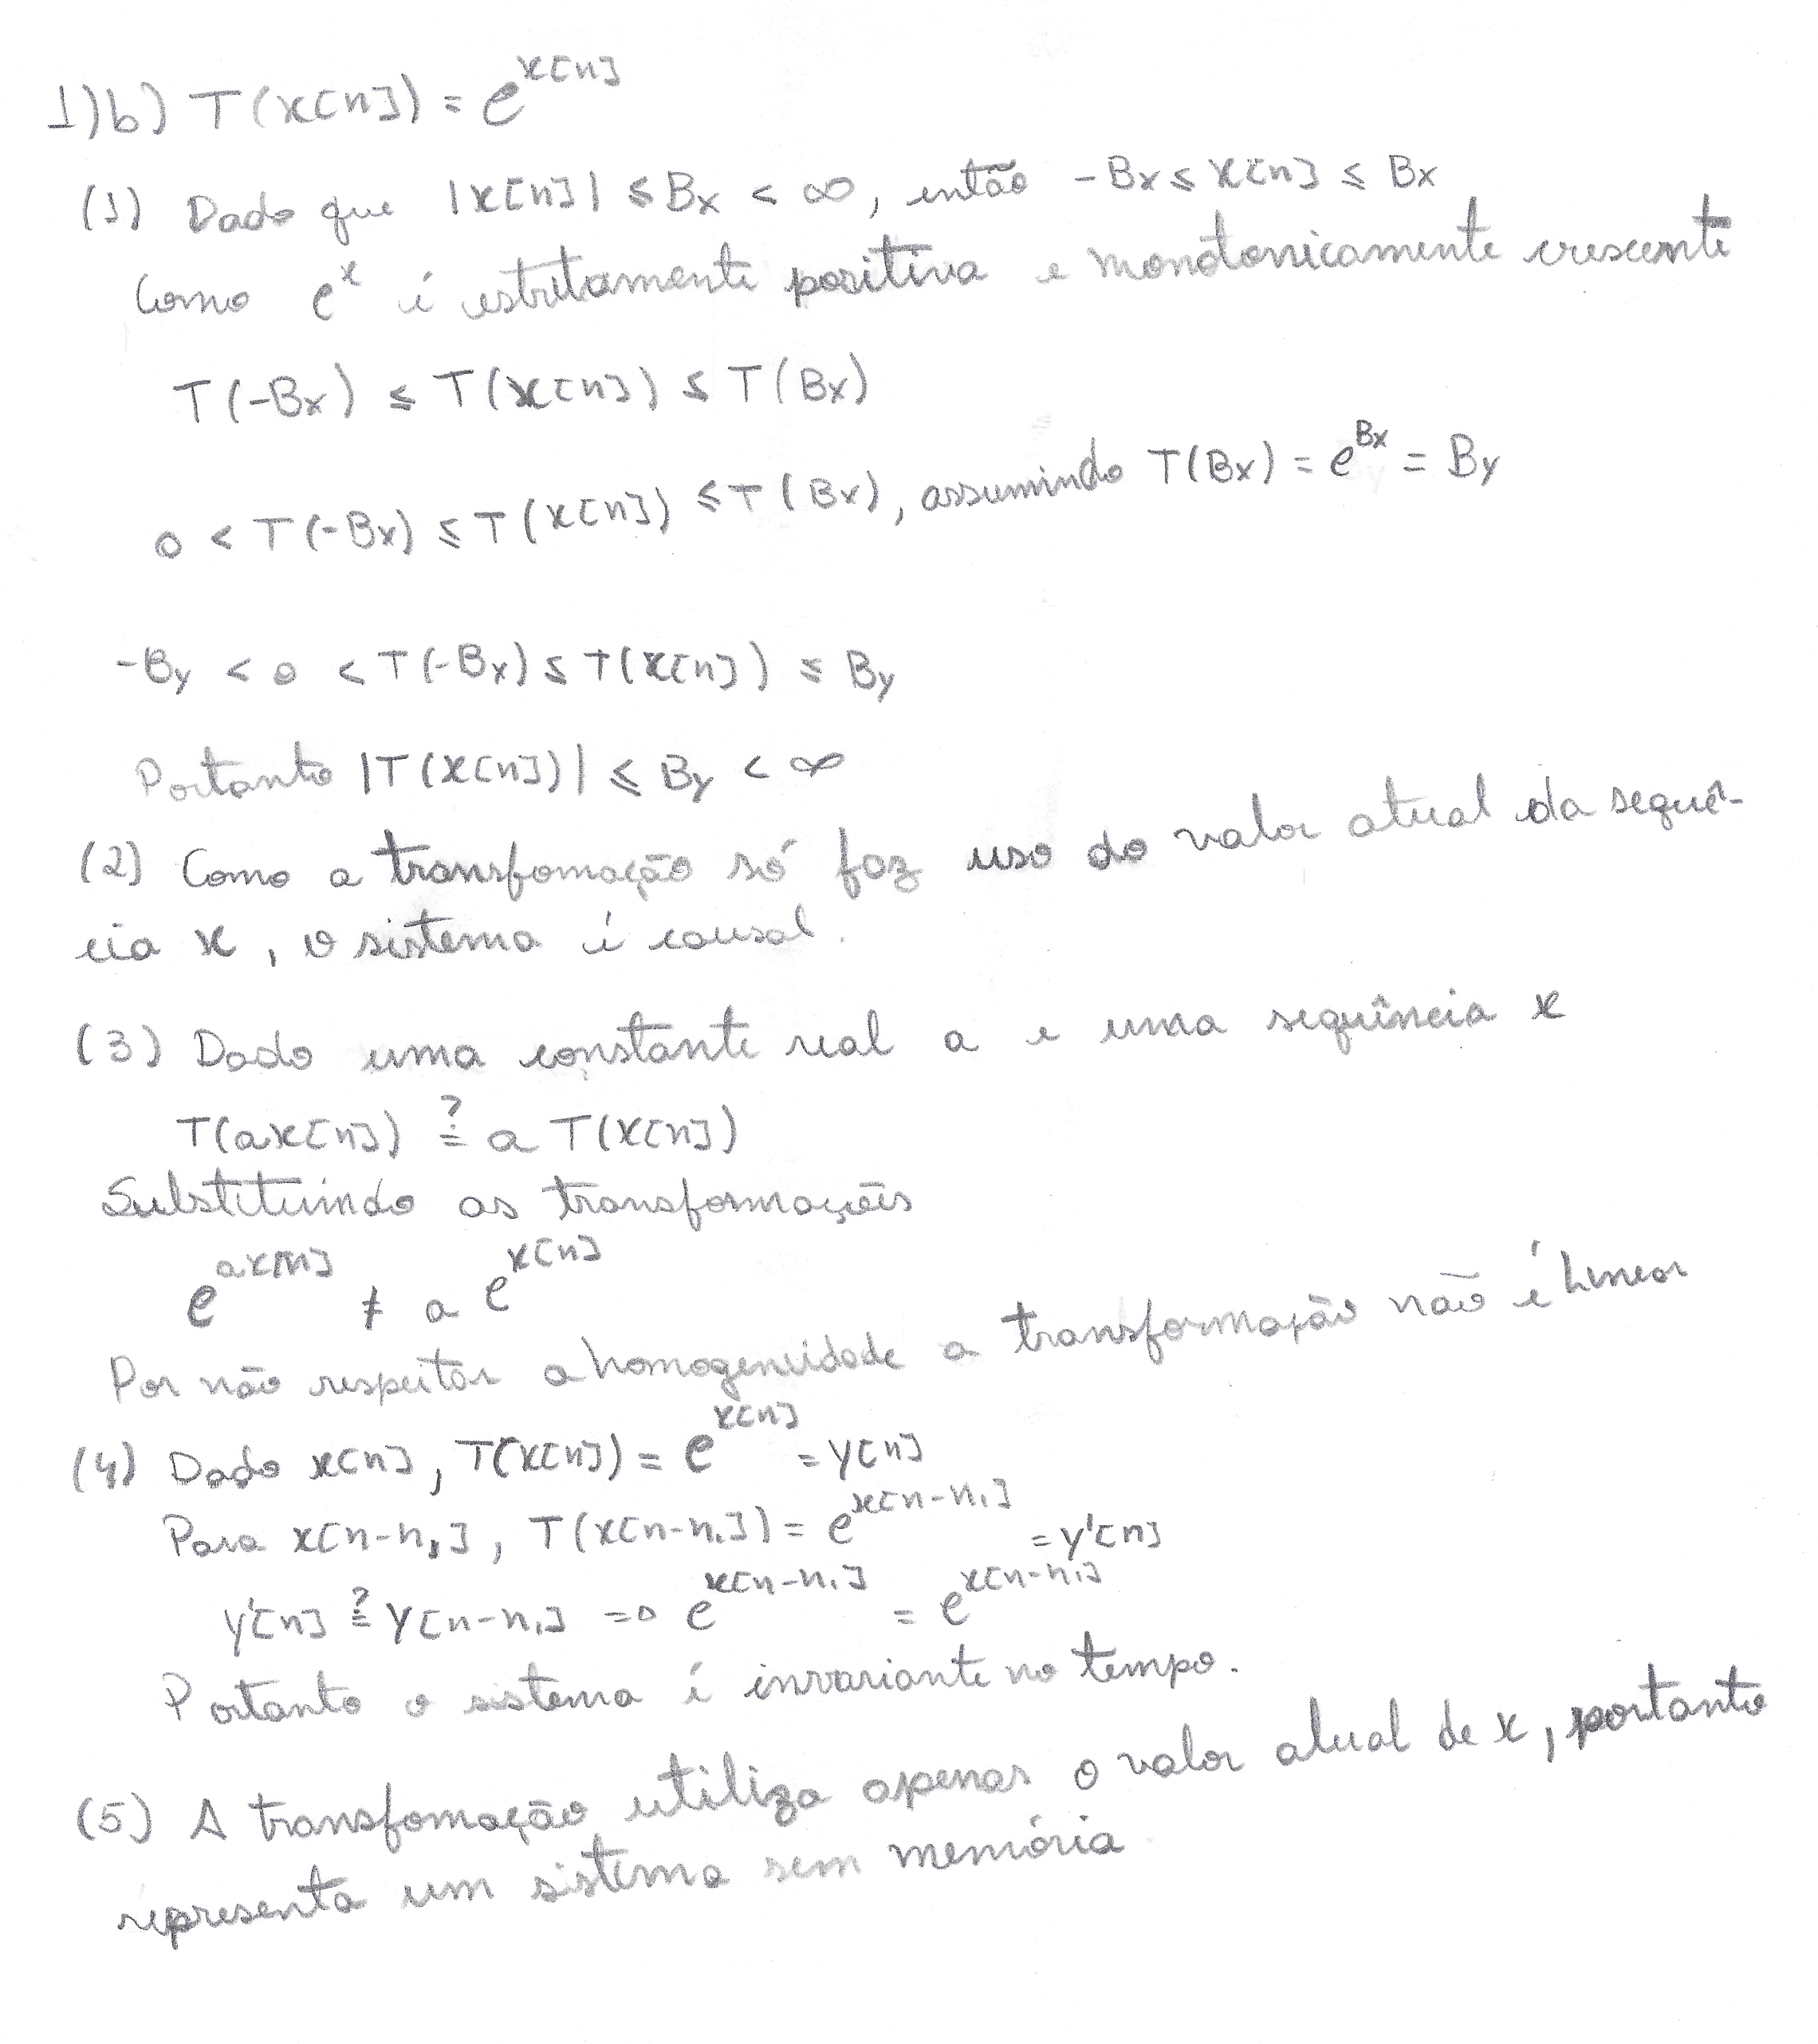 1)b) T(x[n]) = e^{x[n]}
(1) Dado que |x[n]| ≤ Bx < ∞, então -Bx ≤ x[n] ≤ Bx
Como e^x é estritamente positiva e monotonicamente crescente
T(-Bx) ≤ T(x[n]) ≤ T(Bx)
0 < T(-Bx) ≤ T(x[n]) ≤ T(Bx), assumindo T(Bx) = e^{Bx} = By
-By < 0 < T(-Bx) ≤ T(x[n]) ≤ By
Portanto |T(x[n])| ≤ By < ∞
(2) Como a transfomação só faz uso do valor atual da sequên-
cia x, o sistema é causal.
(3) Dado uma constante real a e uma sequência x
T(ax[n]) ≟ a T(x[n])
Substituindo as transformações
e^{ax[n]} ≠ a e^{x[n]}
Por não respeitar a homogeneidade a transformação não é linear
(4) Dado x[n], T(x[n]) = e^{x[n]} = y[n]
Para x[n-n₁], T(x[n-n₁]) = e^{x[n-n₁]} = y'[n]
y'[n] ≟ y[n-n₁] => e^{x[n-n₁]} = e^{x[n-n₁]}
Portanto o sistema é invariante no tempo.
(5) A transfomação utiliza apenas o valor atual de x, portanto
representa um sistema sem memória